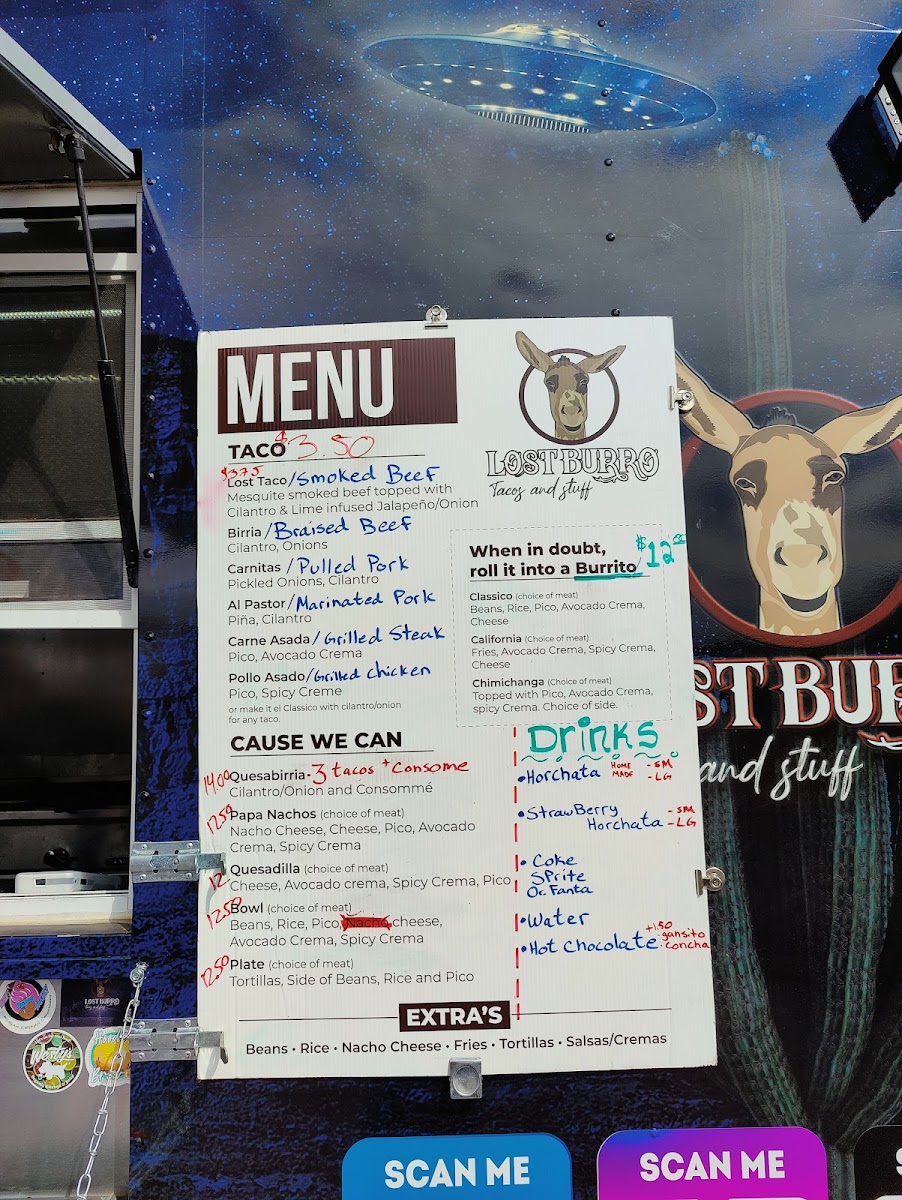 MENU
LOST BURRO
Tacos and stuff
TACO $3.50
$3.75
Lost Taco/Smoked Beef
Mesquite smoked beef topped with
Cilantro & Lime infused Jalapeño/Onion
Birria/Braised Beef
Cilantro, Onions
Carnitas/Pulled Pork
Pickled Onions, Cilantro
Al Pastor/Marinated Pork
Piña, Cilantro
Carne Asada/Grilled Steak
Pico, Avocado Crema
Pollo Asado/Grilled Chicken
Pico, Spicy Creme
or make it el Classico with cilantro/onion
for any taco.
When in doubt,
roll it into a Burrito $12.00
Classico (choice of meat)
Beans, Rice, Pico, Avocado Crema,
Cheese
California (Choice of meat)
Fries, Avocado Crema, Spicy Crema,
Cheese
Chimichanga (Choice of meat)
Topped with Pico, Avocado Crema,
spicy Crema. Choice of side.
CAUSE WE CAN
14.00 Quesabirria-3 tacos + Consome
Cilantro/Onion and Consommé
12.50 Papa Nachos (choice of meat)
Nacho Cheese, Cheese, Pico, Avocado
Crema, Spicy Crema
12 Quesadilla (choice of meat)
Cheese, Avocado crema, Spicy Crema, Pico
12.50 Bowl (choice of meat)
Beans, Rice, Pico, Nacho cheese,
Avocado Crema, Spicy Crema
12.50 Plate (choice of meat)
Tortillas, Side of Beans, Rice and Pico
Drinks
• Horchata HOME MADE -SM -LG
• StrawBerry
Horchata -SM -LG
• Coke
Sprite
Or Fanta
• Water
• Hot Chocolate +1.50 gansito concha
EXTRA'S
Beans • Rice • Nacho Cheese • Fries • Tortillas • Salsas/Cremas
ST BUR
and stuff
LOST BURRO
SCAN ME
SCAN ME
S